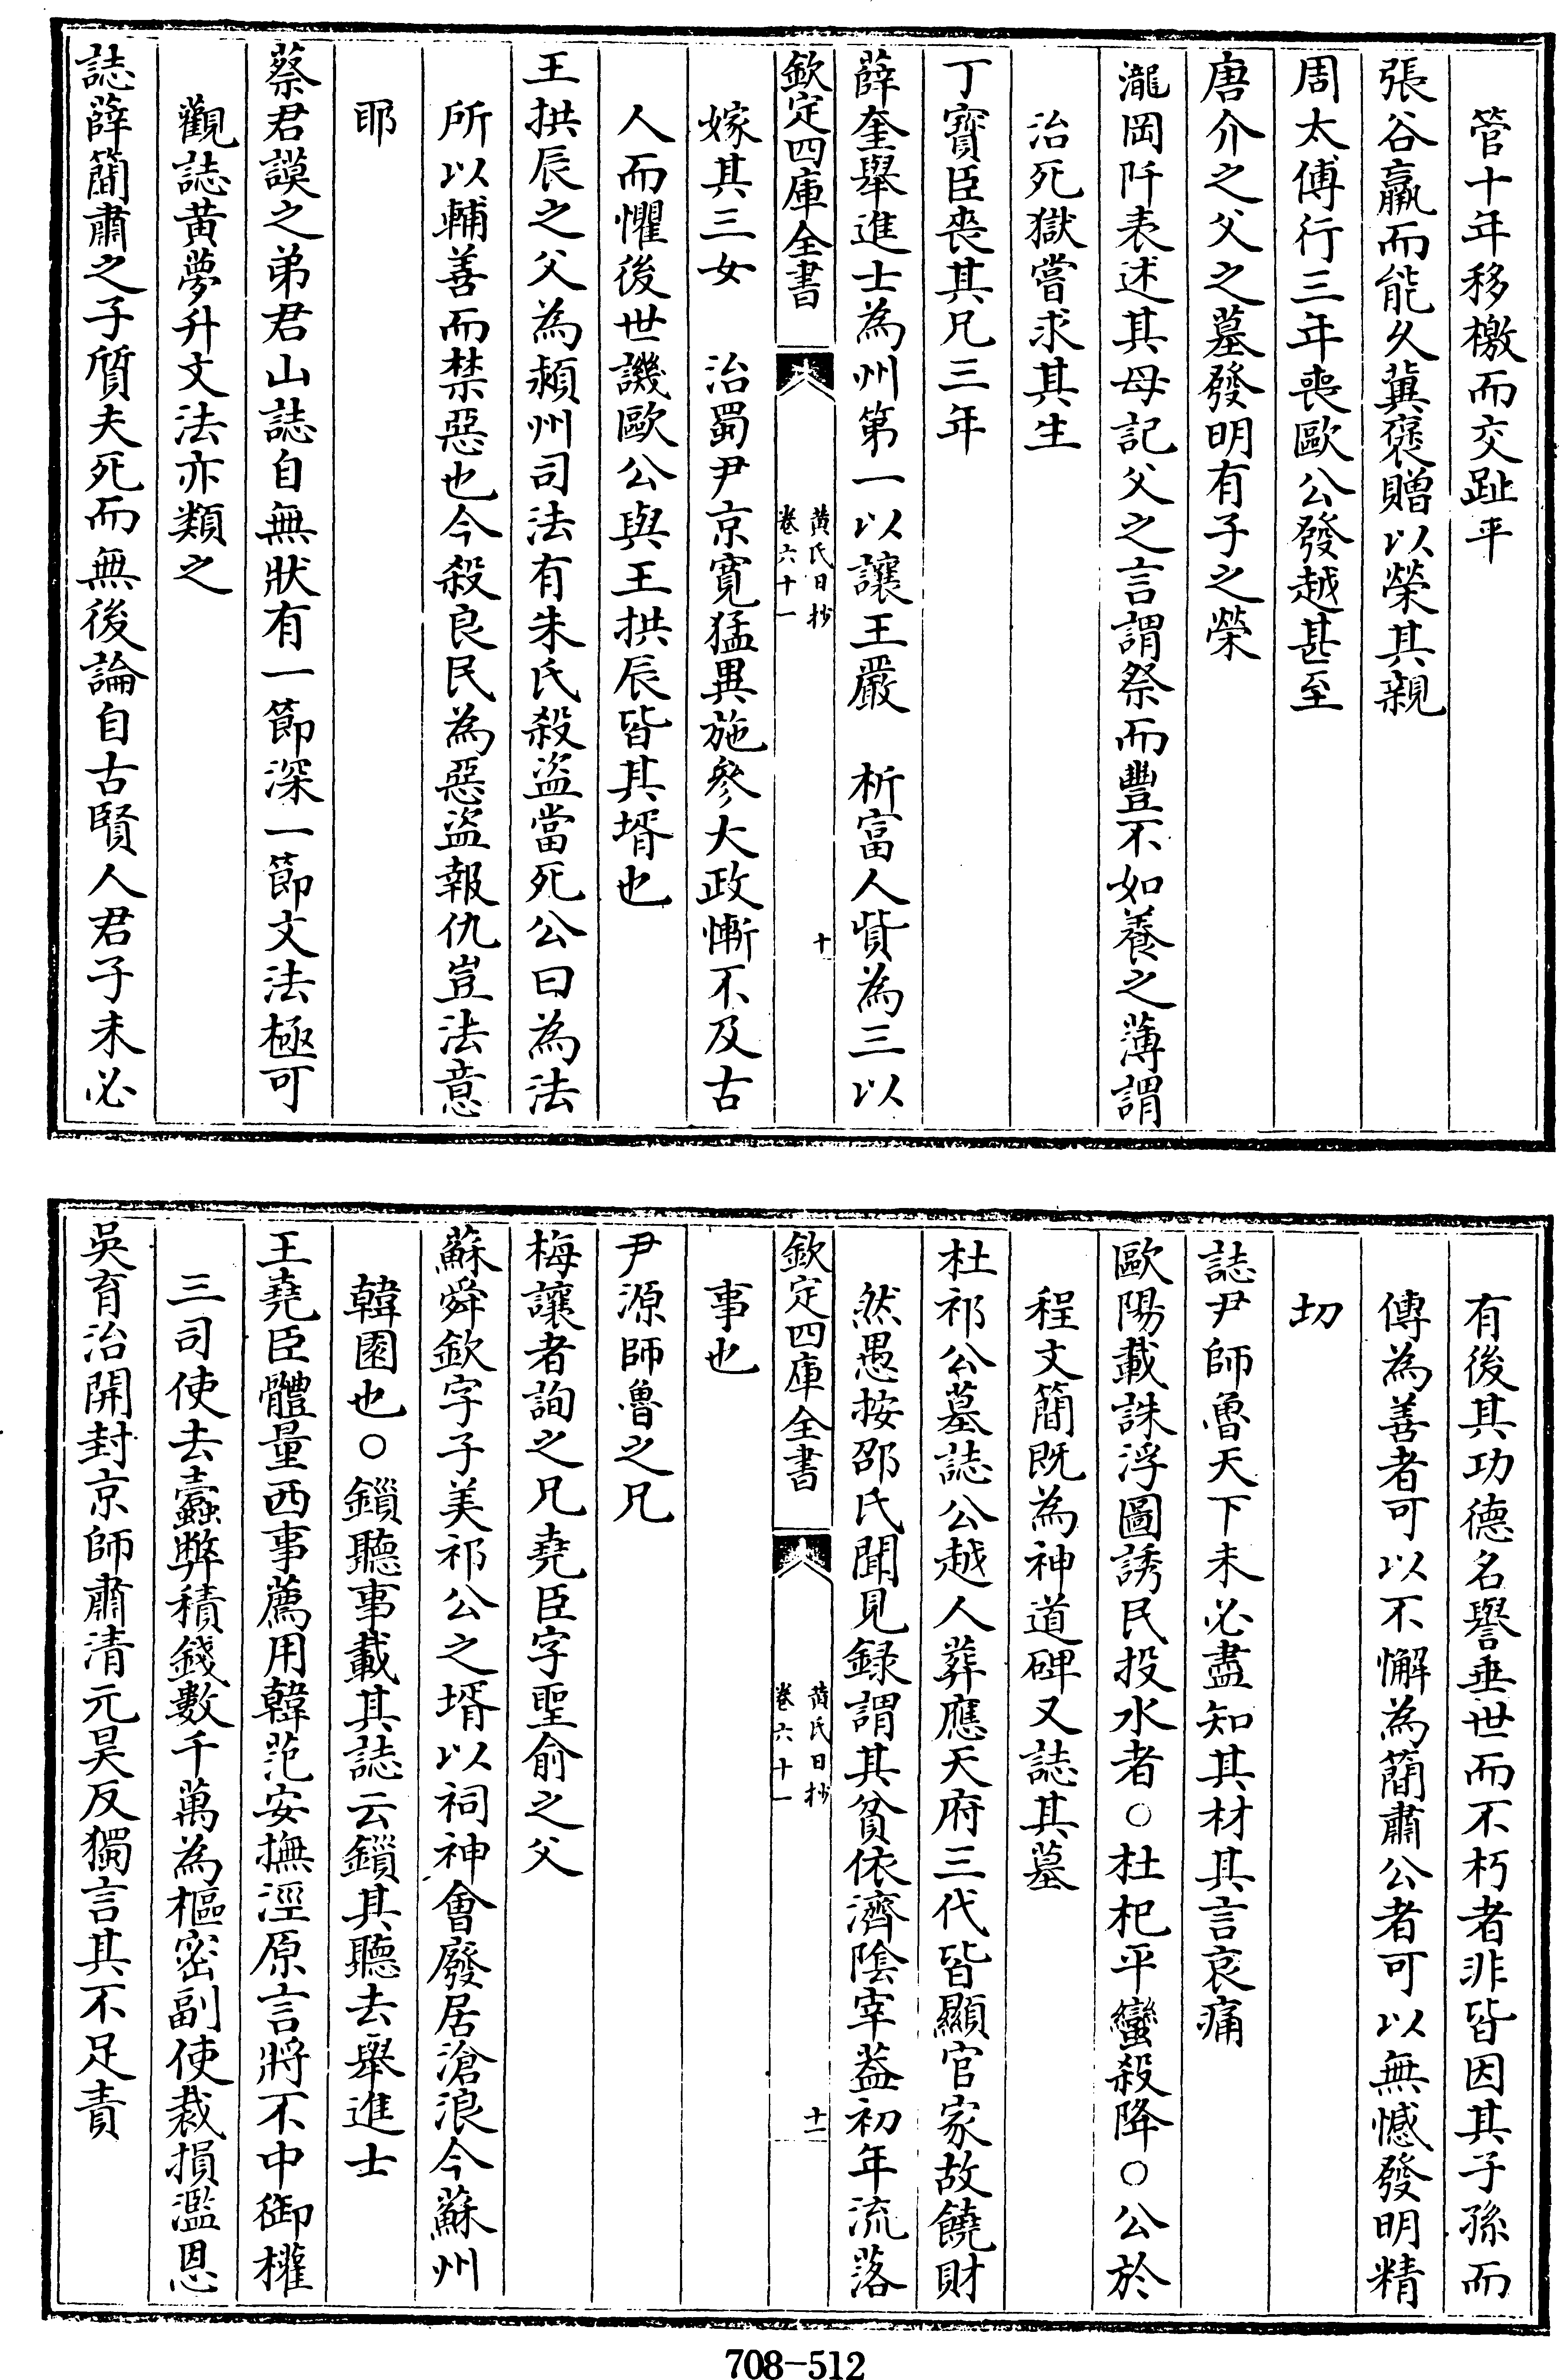 管十年移檄而交趾平
張谷羸而能久冀褒贈以榮其親
周太傅行三年喪歐公發越甚至
唐介之父之墓發明有子之榮
瀧岡阡表述其母記父之言謂祭而豐不如養之薄謂
治死獄嘗求其生
丁寶臣喪其兄三年
薛奎舉進士為州第一以讓王嚴　析富人貲為三以
欽定四庫全書
黄氏日抄
卷六十一
十
嫁其三女　治蜀尹京寛猛異施參大政慚不及古
人而懼後世譏歐公與王拱辰皆其壻也
王拱辰之父為潁州司法有朱氏殺盜當死公曰為法
所以輔善而禁惡也今殺良民為惡盜報仇豈法意
耶
蔡君謨之弟君山誌自無狀有一節深一節文法極可
觀誌黄夢升文法亦類之
誌薛簡肅之子質夫死而無後論自古賢人君子未必
有後其功德名譽垂世而不朽者非皆因其子孫而
傳為善者可以不懈為簡肅公者可以無憾發明精
切
誌尹師魯天下未必盡知其材其言哀痛
歐陽載誅浮圖誘民投水者○杜杞平蠻殺降○公於
程文簡既為神道碑又誌其墓
杜祁公墓誌公越人葬應天府三代皆顯官家故饒財
然愚按邵氏聞見録謂其貧依濟隂宰葢初年流落
欽定四庫全書
黄氏日抄
卷六十一
十一
事也
尹源師魯之兄
梅讓者詢之兄堯臣字聖俞之父
蘇舜欽字子美祁公之壻以祠神會廢居滄浪今蘇州
韓園也○鎖聽事載其誌云鎖其聽去舉進士
王堯臣體量西事薦用韓范安撫涇原言將不中御權
三司使去蠹弊積錢數千萬為樞密副使裁損濫恩
吳育治開封京師肅清元昊反獨言其不足責
708-512